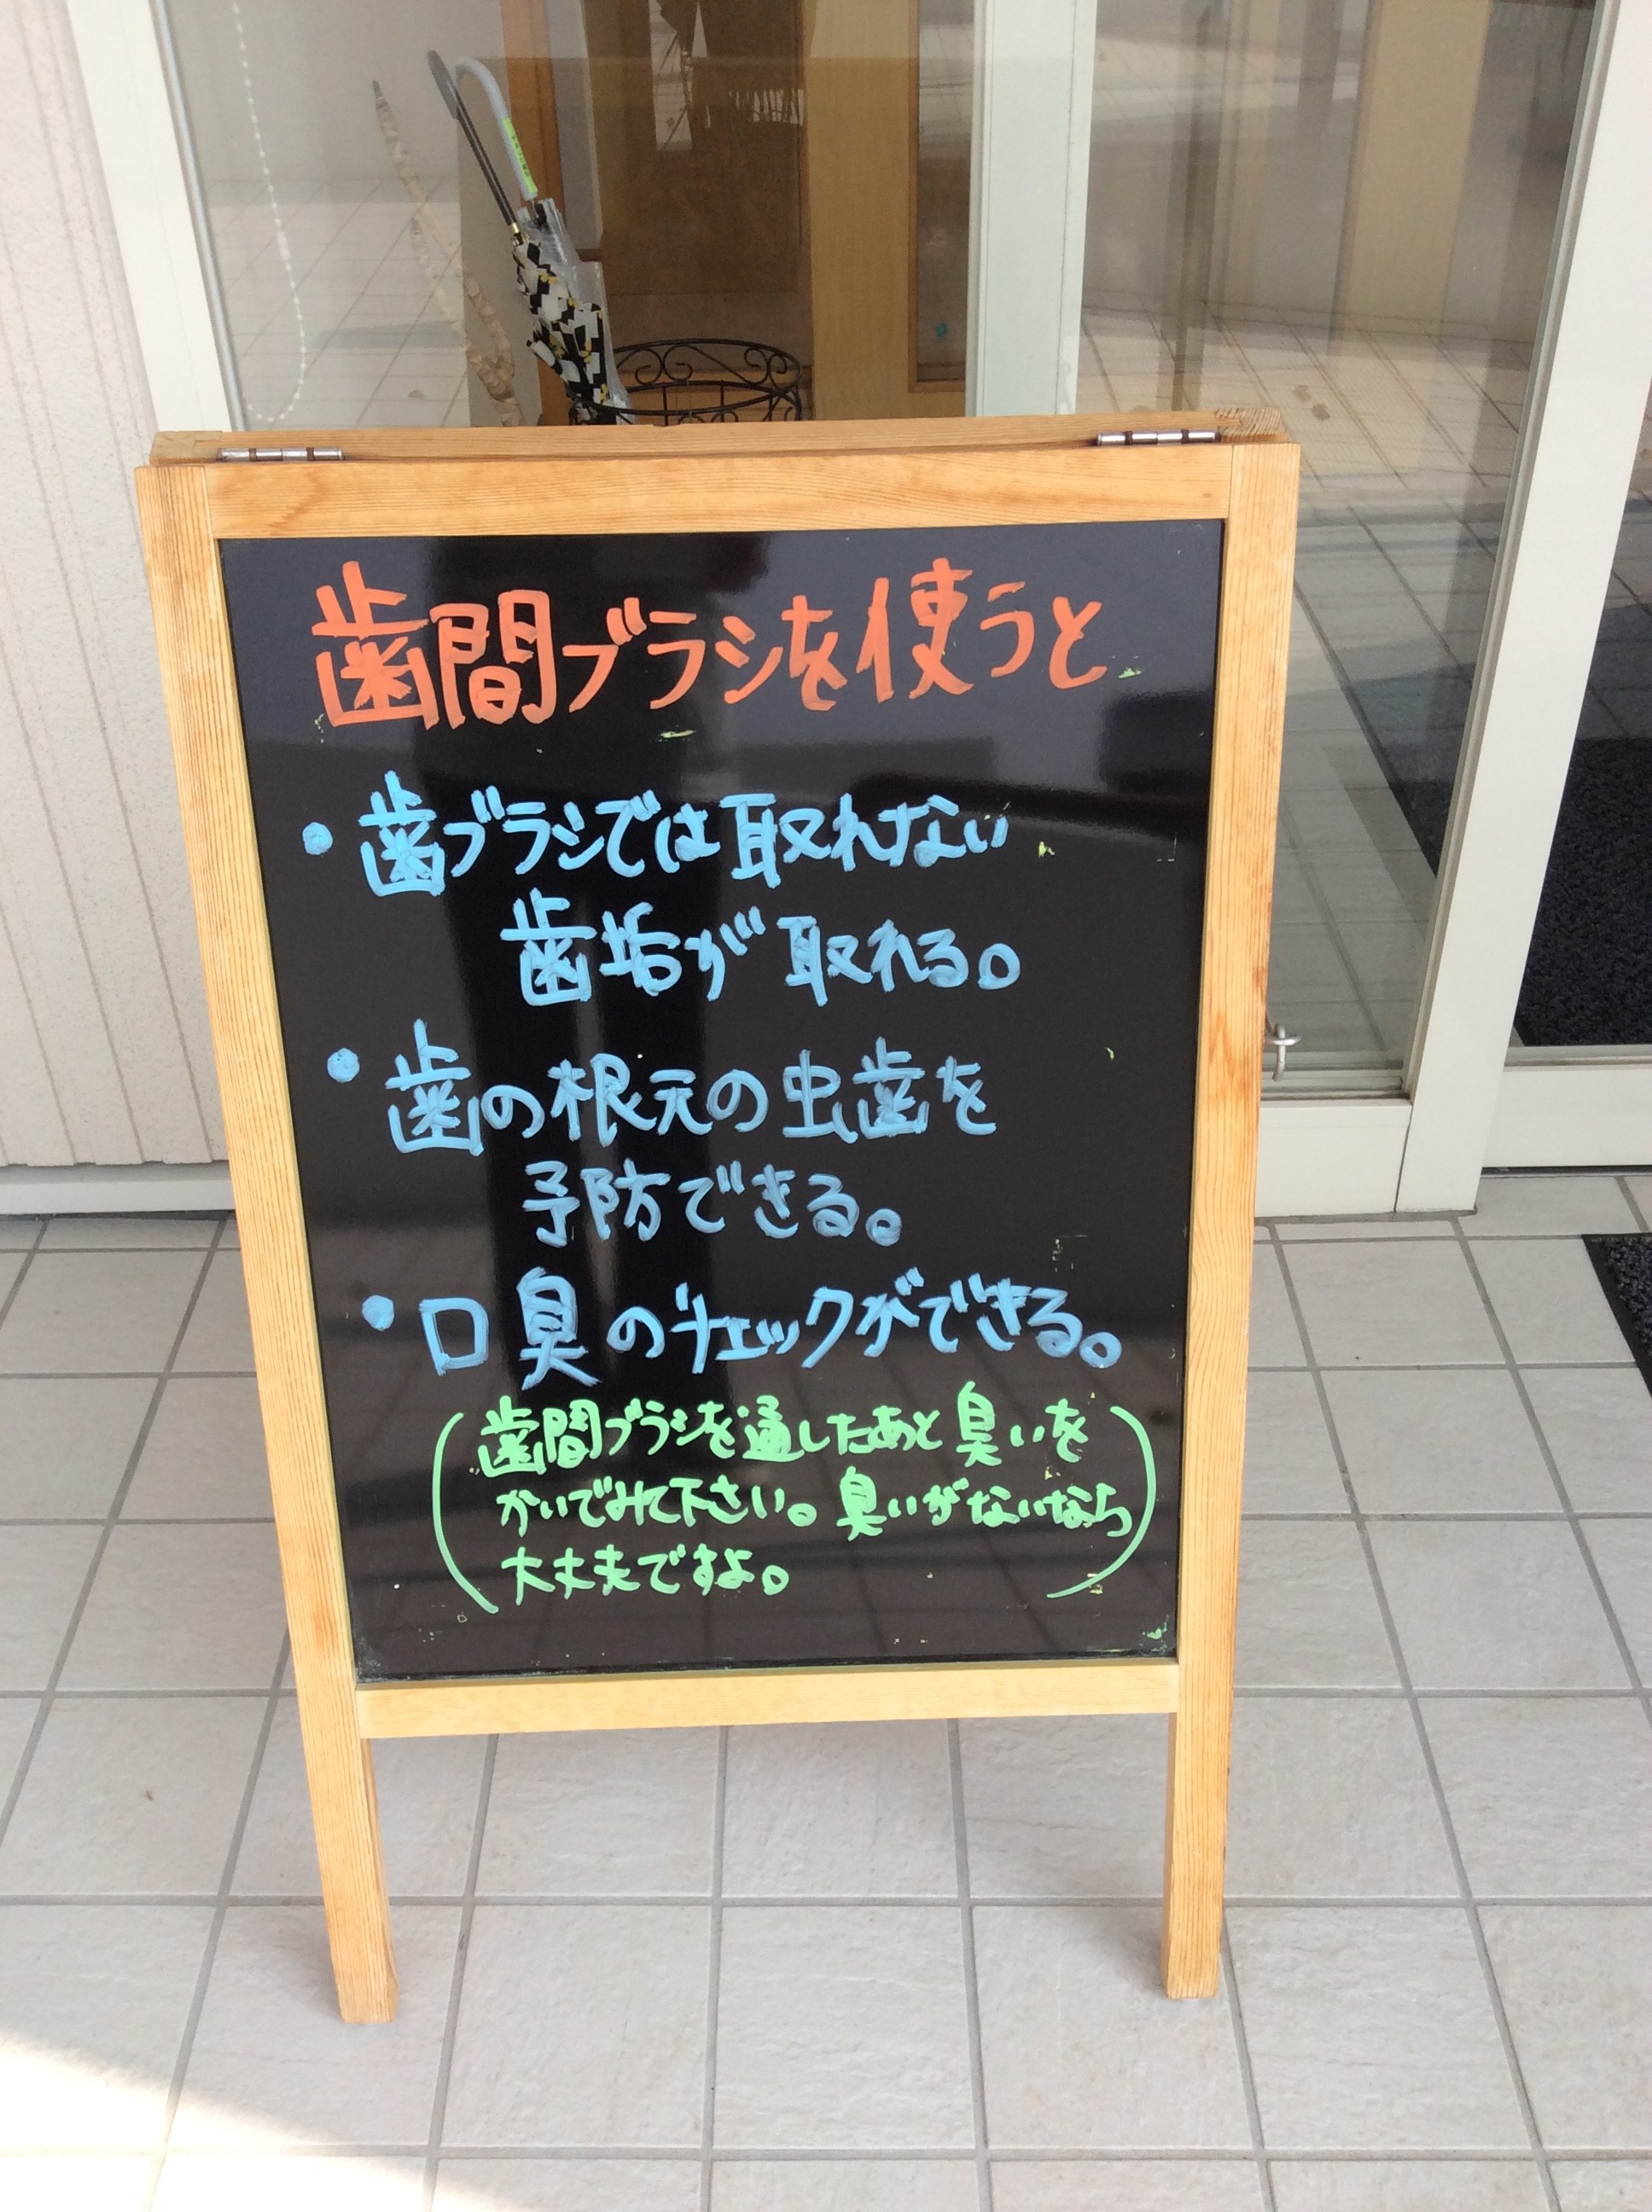 歯間ブラシを使うと
・歯ブラシでは取れない
歯垢が取れる。
・歯の根元の虫歯を
予防できる。
・口臭のチェックができる。
(歯間ブラシを通したあと臭いを
かいでみて下さい。臭いがないなら
大丈夫ですよ。)